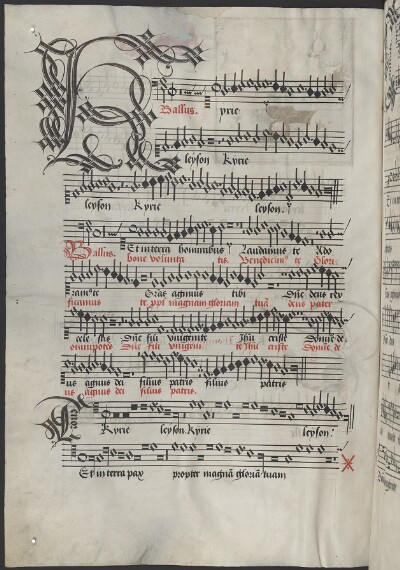 Bassus. prie
leyson Kyrie
leyson Kyrie leyson.
Bassus. Et in terra hominibus Laudamus te Ado
bone volunta tis. Benedicimus te Glori
ramus te Gras agimus tibi Dne deus rex
ficamus te ppt magnam gloriam tuā deus pater
cele stis Dne fili unigenite Jhu criste Domine de
omnipotēs Dne fili unigeni te Jhu criste Domine de
us agnus dei filius patris filius patris
us agnus dei filius patris.
Kyrie leyson. Kyrie leyson.
Et in terra pax propter magnā gloriā tuam